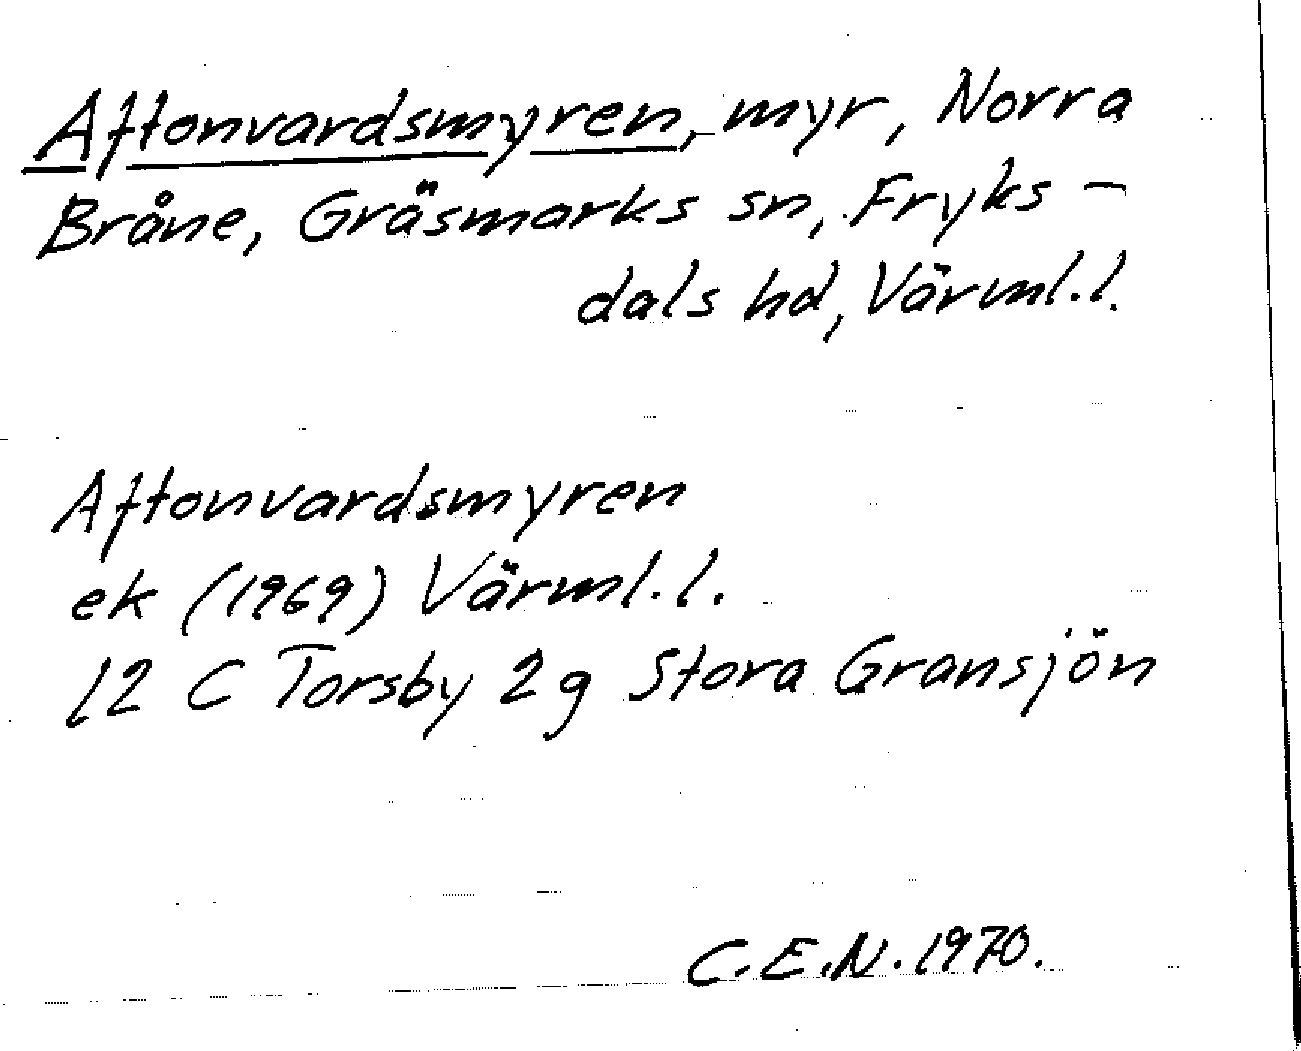 Aftonvardsmyren, myr, Norra
Bråne, Gräsmarks sn, Fryks-
dals hd, Värml.l.
Aftonvardsmyren
ek (1969) Värml.l.
12 C Torsby 2g Stora Gransjön
C.E.N. 1970.